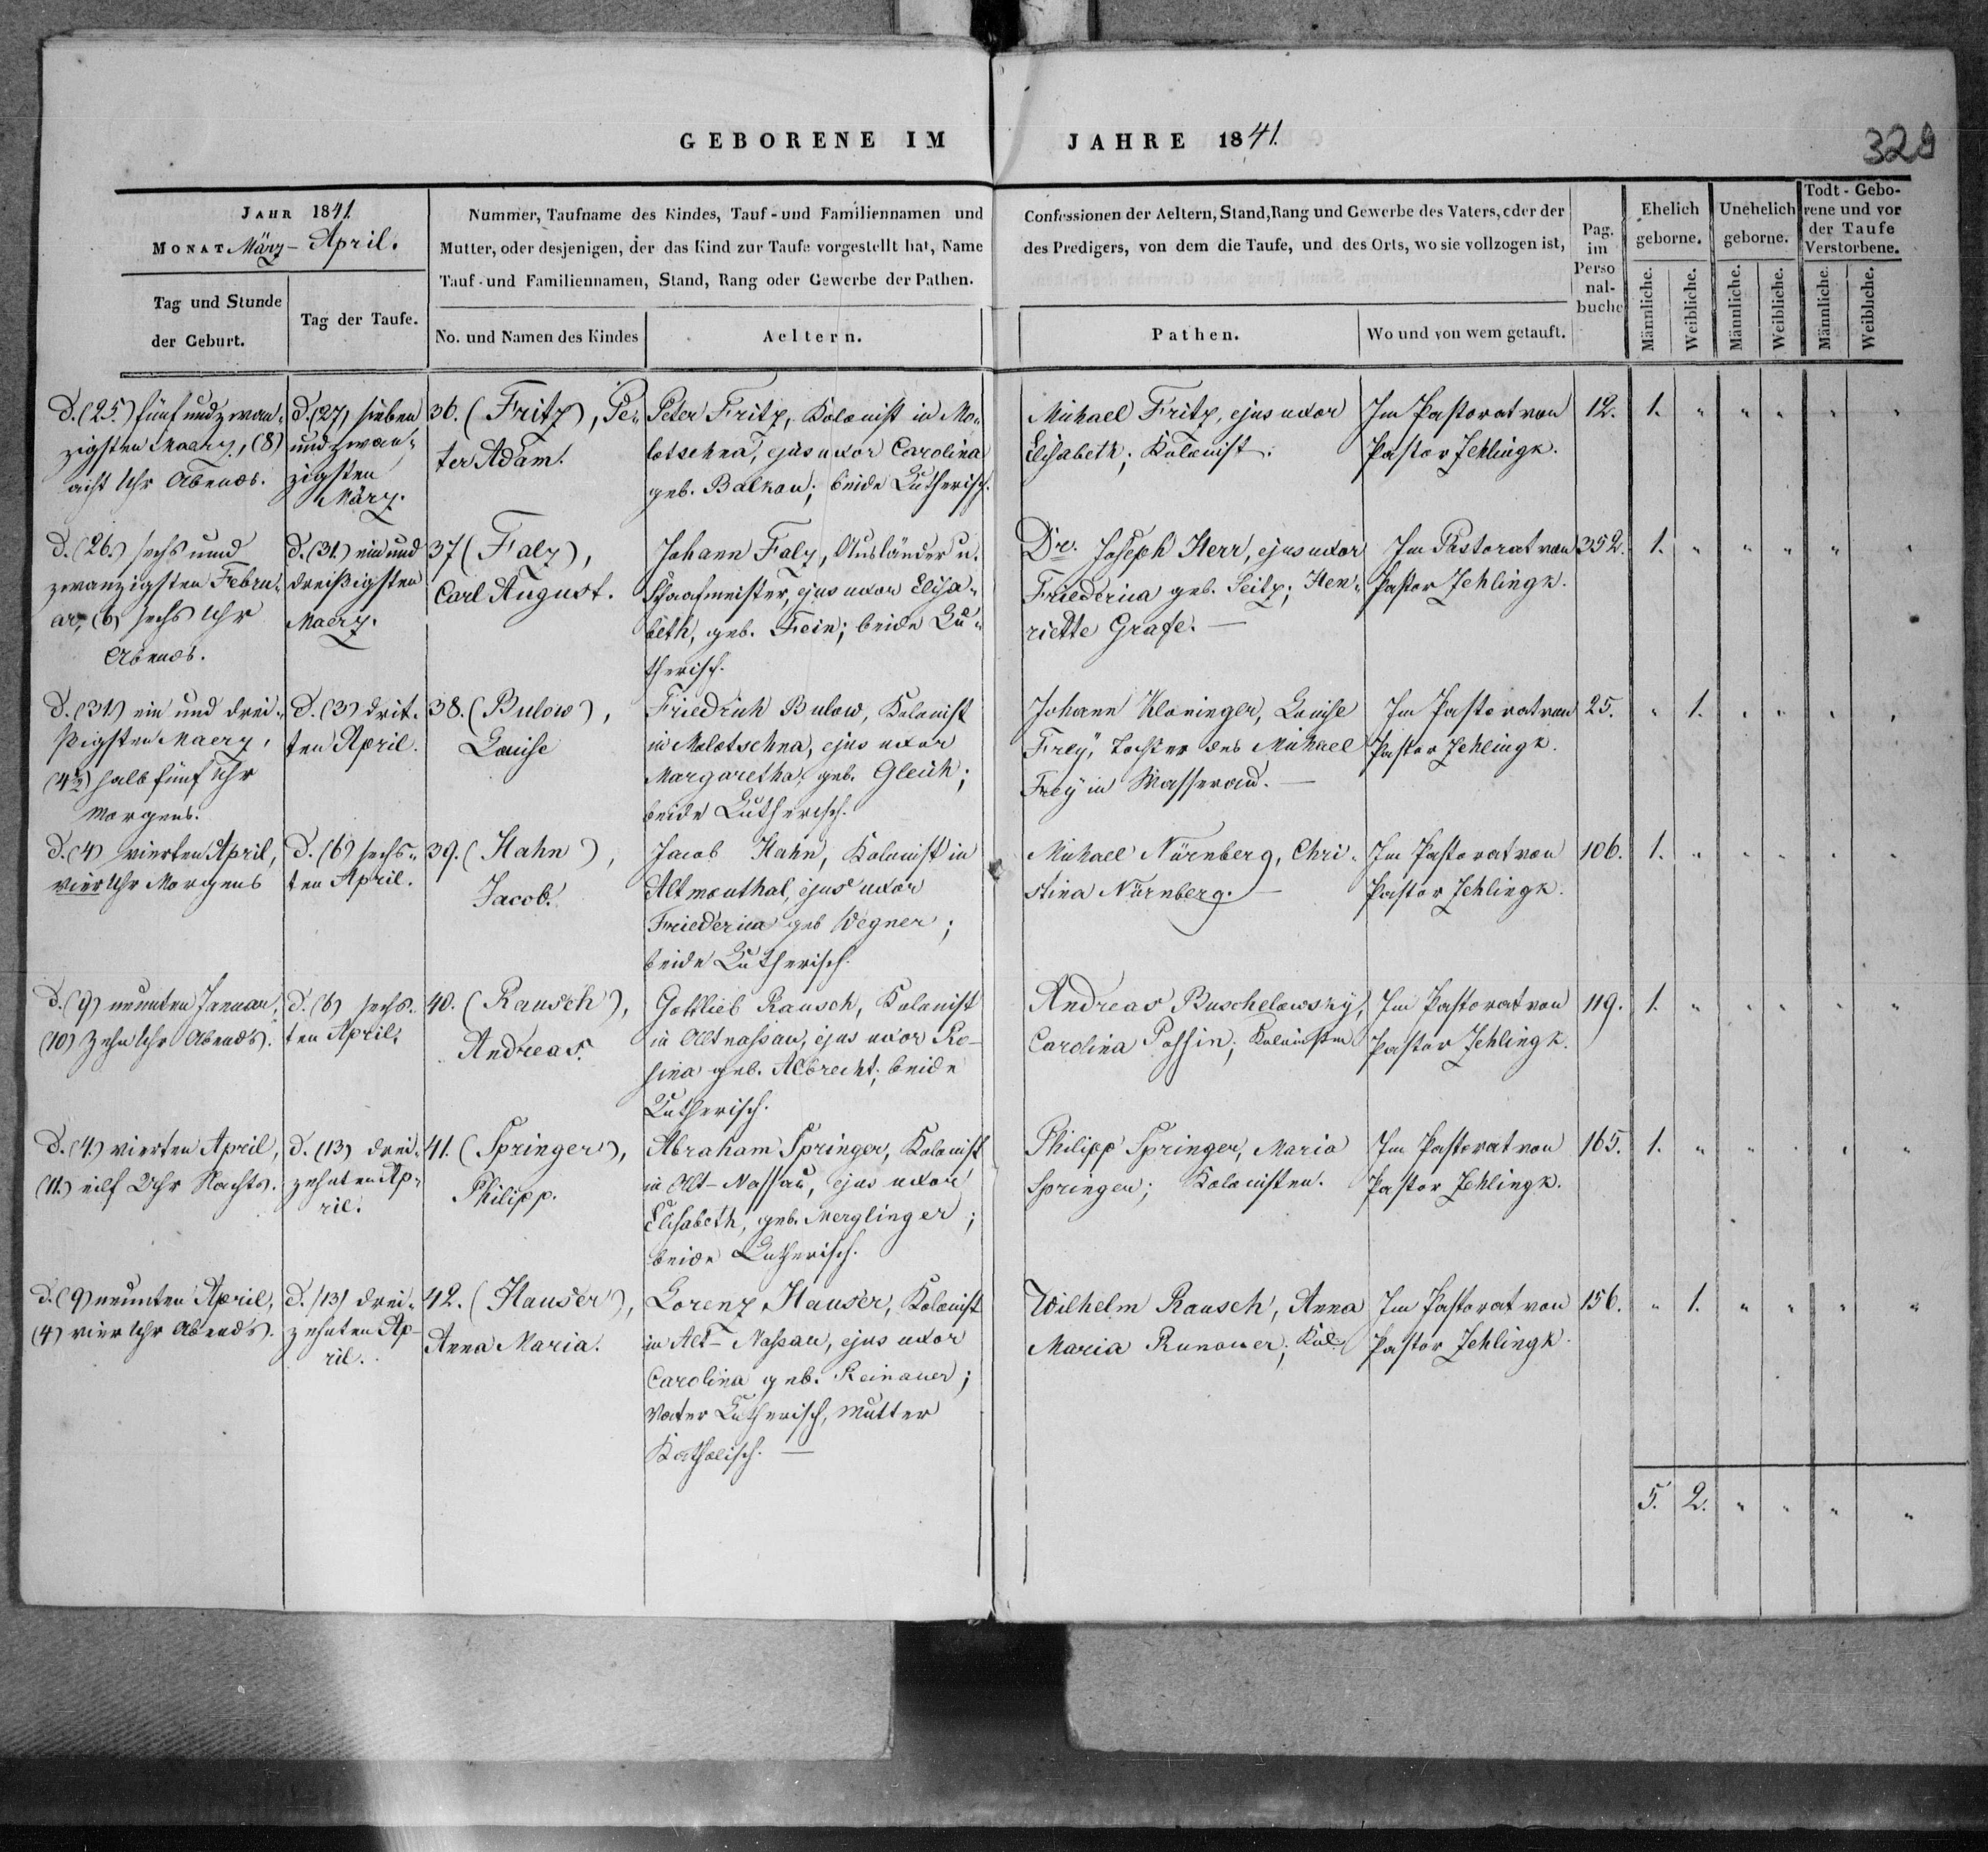 GEBORENE IM JAHRE 1841.
329
JAHR 1841.
MONAT März - April.
Tag und Stunde
der Geburt.
Tag der Taufe.
Nummer, Taufname des Kindes, Tauf- und Familiennamen und
Mutter, oder desjenigen, der das Kind zur Taufe vorgestellt hat, Name
Tauf- und Familiennamen, Stand, Rang oder Gewerbe der Pathen.
No. und Namen des Kindes
Aeltern.
Confessionen der Aeltern, Stand, Rang und Gewerbe des Vaters, oder der
des Predigers, von dem die Taufe, und des Orts, wo sie vollzogen ist,
Pathen.
Wo und von wem getauft.
Pag.
im
Perso
nal-
buche
Ehelich
geborne.
Unehelich
geborne.
Todt-Gebo-
rene und vor
der Taufe
Verstorbene.
Männliche.
Weibliche.
Männliche.
Weibliche.
Männliche.
Weibliche.
D. (25.) fünf und zwan-
zigsten Maerz, (8)
acht Uhr Abends.
D. (27) sieben
und zwan-
zigsten
März.
36. (Fritz), Pe-
ter Adam.
Peter Fritz, Kolonist in Mo-
lotschna, ejus uxor Carolina
geb. Balkau; beide Lutherisch.
Michael Fritz, ejus uxor
Elisabeth; Kolonist.
Im Pastorat von
Pastor Jehlingk.
12.
1. " " " " "
D. (26.) sechs und
zwanzigsten Febru-
ar, (6) sechs Uhr
Abends.
D. (31.) ein und
dreißigsten
Maerz.
37 (Falz),
Carl August.
Johann Falz, Ausländer u.
Schaafmeister, ejus uxor Elisa-
beth, geb. Fein; beide Lu-
therisch.
Dr. Joseph Herr, ejus uxor
Friederica geb. Seitz; Hen-
riette Grafe. —
Im Pastorat von
Pastor Jehlingk.
352.
1. " " " " "
D. (31.) ein und drei-
ßigsten Maerz,
(4½) halb fünf Uhr
Morgens.
D. (3) drit-
ten April.
38. (Bulow),
Louise
Friedrich Bulow, Kolonist
in Molotschna, ejus uxor
Margaretha geb. Gleich;
beide Lutherisch.
Johann Kloninger, Louise
Frey, Tochter des Michael
Frey in Wasserau. —
Im Pastorat von
Pastor Jehlingk.
25.
" 1. " " " "
D. (4) vierten April,
vier Uhr Morgens
D. (6) sechs-
ten April.
39. (Hahn),
Jacob.
Jacob Hahn, Kolonist in
Altmonthal, ejus uxor
Friederica geb Wegner;
beide Lutherisch.
Michael Nürnberg, Chri-
stina Nürnberg. —
Im Pastorat von
Pastor Jehlingk.
106.
1. " " " " "
D. (9) neunten Januar,
(10) zehn Uhr Abends.
D. (6) sechs-
ten April.
40. (Rausch),
Andreas.
Gottlieb Rausch, Kolonist
in Altnassau, ejus uxor Ro-
sina geb. Albrecht; beide
Lutherisch.
Andreas Buschelowsky,
Carolina Possin; Kolonisten
Im Pastorat von
Pastor Jehlingk.
119.
1. " " " " "
D. (4.) vierten April,
(11.) eilf Uhr Nachts.
D. (13) drei-
zehnten Ap-
ril.
41. (Springer),
Philipp.
Abraham Springer, Kolonist
in Alt-Nassau, ejus uxor
Elisabeth, geb. Merglinger;
beide Lutherisch.
Philipp Springer, Maria
Springer; Kolonisten.
Im Pastorat von
Pastor Jehlingk.
165.
1. " " " " "
D. (9) neunten April,
(4) vier Uhr Abends.
D. (13) drei-
zehnten Ap-
ril.
42. (Hauser),
Anna Maria.
Lorenz Hauser, Kolonist
in Alt-Nassau, ejus uxor
Carolina geb. Reinauer;
Vater Lutherisch, Mutter
Katholisch. —
Wilhelm Rausch, Anna
Maria Runauer; Kol.
Im Pastorat von
Pastor Jehlingk.
156.
" 1. " " " "
5. 2. " " " "